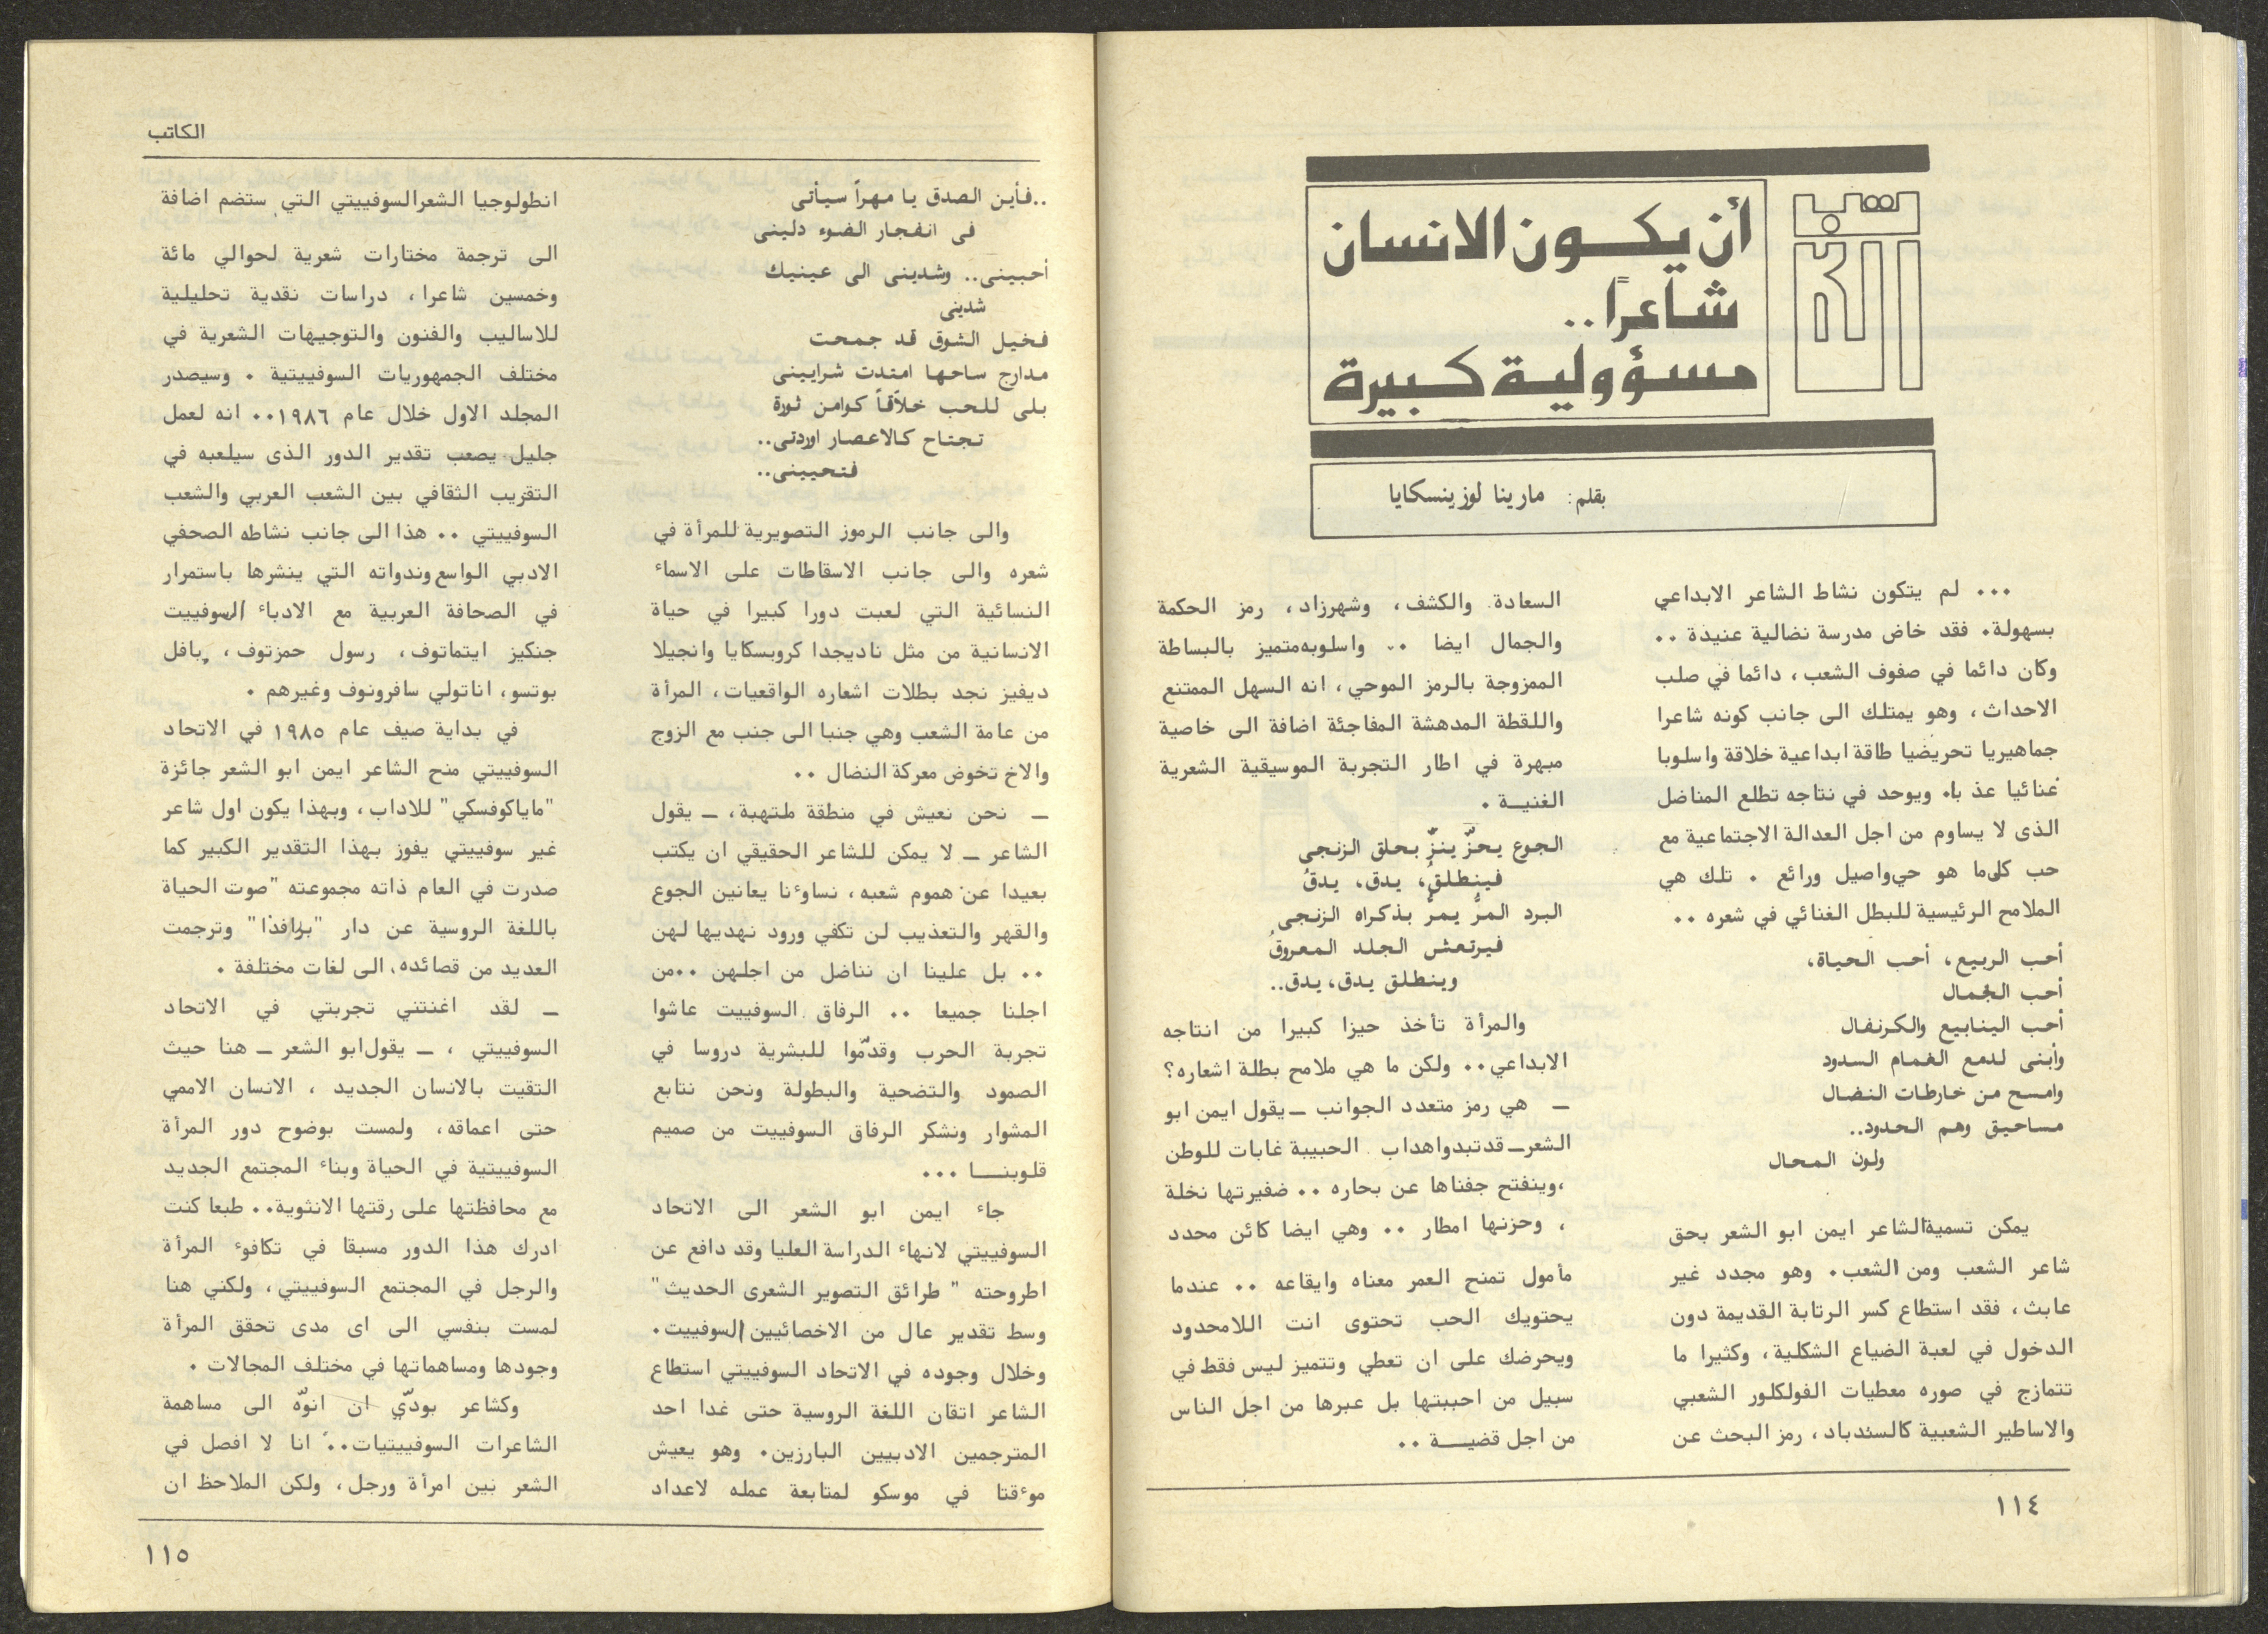 أن يكون الانسان
شاعراً..
مسؤولية كبيرة
بقلم: مارينا لوزينسكايا
... لم يتكون نشاط الشاعر الابداعي
بسهولة. فقد خاض مدرسة نضالية عنيدة ..
وكان دائما في صفوف الشعب، دائما في صلب
الاحداث، وهو يمتلك الى جانب كونه شاعرا
جماهيريا تحريضيا طاقة ابداعية خلاقة واسلوبا
غنائيا عذ با. ويوحد في نتاجه تطلع المناضل
الذى لا يساوم من اجل العدالة الاجتماعية مع
حب كل ما هو حي واصيل ورائع . تلك هي
الملامح الرئيسية للبطل الغنائي في شعره ..
أحب الربيع، أحب الحياة،
أحب الجمال
أحب الينابيع والكرنفال
وأبنى لدمع الغمام السدود
وامسح من خارطات النضال
مساحيق وهم الحدود..
ولون المحال
يمكن تسمية الشاعر ايمن ابو الشعر بحق
شاعر الشعب ومن الشعب. وهو مجدد غير
عابث، فقد استطاع كسر الرتابة القديمة دون
الدخول في لعبة الضياع الشكلية، وكثيرا ما
تتمازج في صوره معطيات الفولكلور الشعبي
والاساطير الشعبية كالسندباد، رمز البحث عن
السعادة والكشف، وشهرزاد، رمز الحكمة
والجمال ايضا .. واسلوبه متميز بالبساطة
الممزوجة بالرمز الموحي، انه السهل الممتنع
واللقطة المدهشة المفاجئة اضافة الى خاصية
مبهرة في اطار التجربة الموسيقية الشعرية
الغنيـة .
الجوع يحزّ ينزّ بحلق الزنجى
فينطلق، يدق، يدقُ
البرد المرُّ يمرُّ بذكراه الزنجى
فيرتعش الجلد المعروقُ
وينطلق يدق، يدق..
والمرأة تأخذ حيزا كبيرا من انتاجه
الابداعي.. ولكن ما هي ملامح بطلة اشعاره؟
ـ هي رمز متعدد الجوانب ـ يقول ايمن ابو
الشعر ـ قد تبدو اهداب الحبيبة غابات للوطن
،وينفتح جفناها عن بحاره .. ضفيرتها نخلة
، وحزنها امطار .. وهي ايضا كائن محدد
مأمول تمنح العمر معناه وايقاعه .. عندما
يحتويك الحب تحتوى انت اللامحدود
ويحرضك على ان تعطي وتتميز ليس فقط في
سبيل من احببتها بل عبرها من اجل الناس
من اجل قضيـــة ..
١١٤
الكاتب
..فأين الصدق يا مهراً سيأتى
فى انفجار الضوء دلينى
أحبينى.. وشدينى الى عينيك
شدينى
فخيل الشوق قد جمحت
مدارج ساحها امتدت شرايينى
بلى للحب خلاّقاً كوامن ثورة
تجتاح كالاعصار اوردتى..
فتحيينى..
والى جانب الرموز التصويرية للمرأة في
شعره والى جانب الاسقاطات على الاسماء
النسائية التي لعبت دورا كبيرا في حياة
الانسانية من مثل ناديجدا كروبسكايا وانجيلا
ديفيز نجد بطلات اشعاره الواقعيات، المرأة
من عامة الشعب وهي جنبا الى جنب مع الزوج
والاخ تخوض معركة النضال ..
ـ نحن نعيش في منطقة ملتهبة، ـ يقول
الشاعر ـ لا يمكن للشاعر الحقيقي ان يكتب
بعيدا عن هموم شعبه، نساوءنا يعانين الجوع
والقهر والتعذيب لن تكفي ورود نهديها لهن
.. بل علينا ان نناضل من اجلهن ..من
اجلنا جميعا .. الرفاق السوفييت عاشوا
تجربة الحرب وقدّموا للبشرية دروسا في
الصمود والتضحية والبطولة ونحن نتابع
المشوار ونشكر الرفاق السوفييت من صميم
قلوبنـــا ...
جاء ايمن ابو الشعر الى الاتحاد
السوفييتي لانهاء الدراسة العليا وقد دافع عن
اطروحته " طرائق التصوير الشعرى الحديث"
وسط تقدير عال من الاخصائيين السوفييت.
وخلال وجوده في الاتحاد السوفييتي استطاع
الشاعر اتقان اللغة الروسية حتى غدا احد
المترجمين الادبيين البارزين. وهو يعيش
موءقتا في موسكو لمتابعة عمله لاعداد
انطولوجيا الشعر السوفييتي التي ستضم اضافة
الى ترجمة مختارات شعرية لحوالي مائة
وخمسين شاعرا، دراسات نقدية تحليلية
للاساليب والفنون والتوجيهات الشعرية في
مختلف الجمهوريات السوفييتية . وسيصدر
المجلد الاول خلال عام ١٩٨٦.. انه لعمل
جليل يصعب تقدير الدور الذى سيلعبه في
التقريب الثقافي بين الشعب العربي والشعب
السوفييتي .. هذا الى جانب نشاطه الصحفي
الادبي الواسع وندواته التي ينشرها باستمرار
في الصحافة العربية مع الادباء السوفييت
جنكيز ايتماتوف، رسول حمزتوف، بافل
بوتسو، اناتولي سافرونوف وغيرهم .
في بداية صيف عام ١٩٨٥ في الاتحاد
السوفييتي منح الشاعر ايمن ابو الشعر جائزة
"ماياكوفسكي" للاداب، وبهذا يكون اول شاعر
غير سوفييتي يفوز بهذا التقدير الكبير كما
صدرت في العام ذاته مجموعته "صوت الحياة
باللغة الروسية عن دار "برافدا" وترجمت
العديد من قصائده، الى لغات مختلفة .
ـ لقد اغنتني تجربتي في الاتحاد
السوفييتي ، ـ يقول ابو الشعر ـ هنا حيث
التقيت بالانسان الجديد ، الانسان الاممي
حتى اعماقه، ولمست بوضوح دور المرأة
السوفييتية في الحياة وبناء المجتمع الجديد
مع محافظتها على رقتها الانثوية.. طبعا كنت
ادرك هذا الدور مسبقا في تكافوء المرأة
والرجل في المجتمع السوفييتي، ولكني هنا
لمست بنفسي الى اى مدى تحقق المرأة
وجودها ومساهماتها في مختلف المجالات .
وكشاعر بودّي ان انوّه الى مساهمة
الشاعرات السوفييتيات.. انا لا افصل في
الشعر بين امرأة ورجل، ولكن الملاحظ ان
١١٥